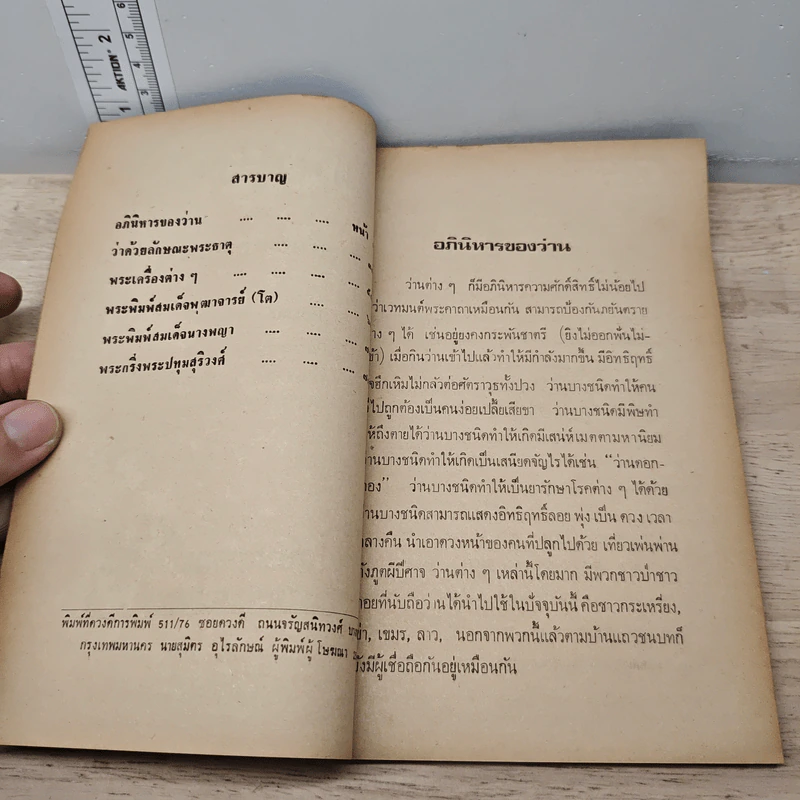 2
1
6
5
4
3
AKTION
สารบาญ
หน้า
อภินิหารของว่าน .... .... ....
ว่าด้วยลักษณะพระธาตุ .... ....
พระเครื่องต่าง ๆ .... .... ....
พระพิมพ์สมเด็จพุฒาจารย์ (โต) .... ....
พระพิมพ์สมเด็จนางพญา .... ....
พระกริ่งพระปทุมสุริวงศ์ .... .... ....
พิมพ์ที่ดวงดีการพิมพ์ 511/76 ซอยดวงดี ถนนจรัญสนิทวงศ์
กรุงเทพมหานคร นายสุมิตร อุไรลักษณ์ ผู้พิมพ์ผู้โฆษณา
อภินิหารของว่าน
ว่านต่าง ๆ ก็มีอภินิหารความศักดิ์สิทธิ์ไม่น้อยไป
ว่าเวทมนต์พระคาถาเหมือนกัน สามารถป้องกันภยันตราย
ๆ ได้ เช่นอยู่ยงคงกระพันชาตรี (ยิงไม่ออกฟันไม่-
เมื่อกินว่านเข้าไปแล้วทำให้มีกำลังมากขึ้น มีอิทธิฤทธิ์
ฮึกเหิมไม่กลัวต่อศัตราวุธทั้งปวง ว่านบางชนิดทำให้คน
ไปถูกต้องเป็นคนง่อยเปลี้ยเสียขา ว่านบางชนิดมีพิษทำ
ถึงตายได้ว่านบางชนิดทำให้เกิดมีเสน่ห์เมตตามหานิยม
บางชนิดทำให้เกิดเป็นเสนียดจัญไรได้เช่น “ว่านดอก-
ทอง” ว่านบางชนิดทำให้เป็นยารักษาโรคต่าง ๆ ได้ด้วย
บางชนิดสามารถแสดงอิทธิฤทธิ์ลอย พุ่ง เป็น ดวง เวลา
กลางคืน นำเอาดวงหน้าของคนที่ปลูกไปด้วย เที่ยวเพ่นพ่าน
ภูตผีปีศาจ ว่านต่าง ๆ เหล่านี้โดยมาก มีพวกชาวป่าชาว
ที่นับถือว่านได้นำไปใช้ในปัจจุบันนี้ คือชาวกระเหรี่ยง,
เขมร, ลาว, นอกจากพวกนี้แล้วตามบ้านแถวชนบทก็
ยังมีผู้เชื่อถือกันอยู่เหมือนกัน